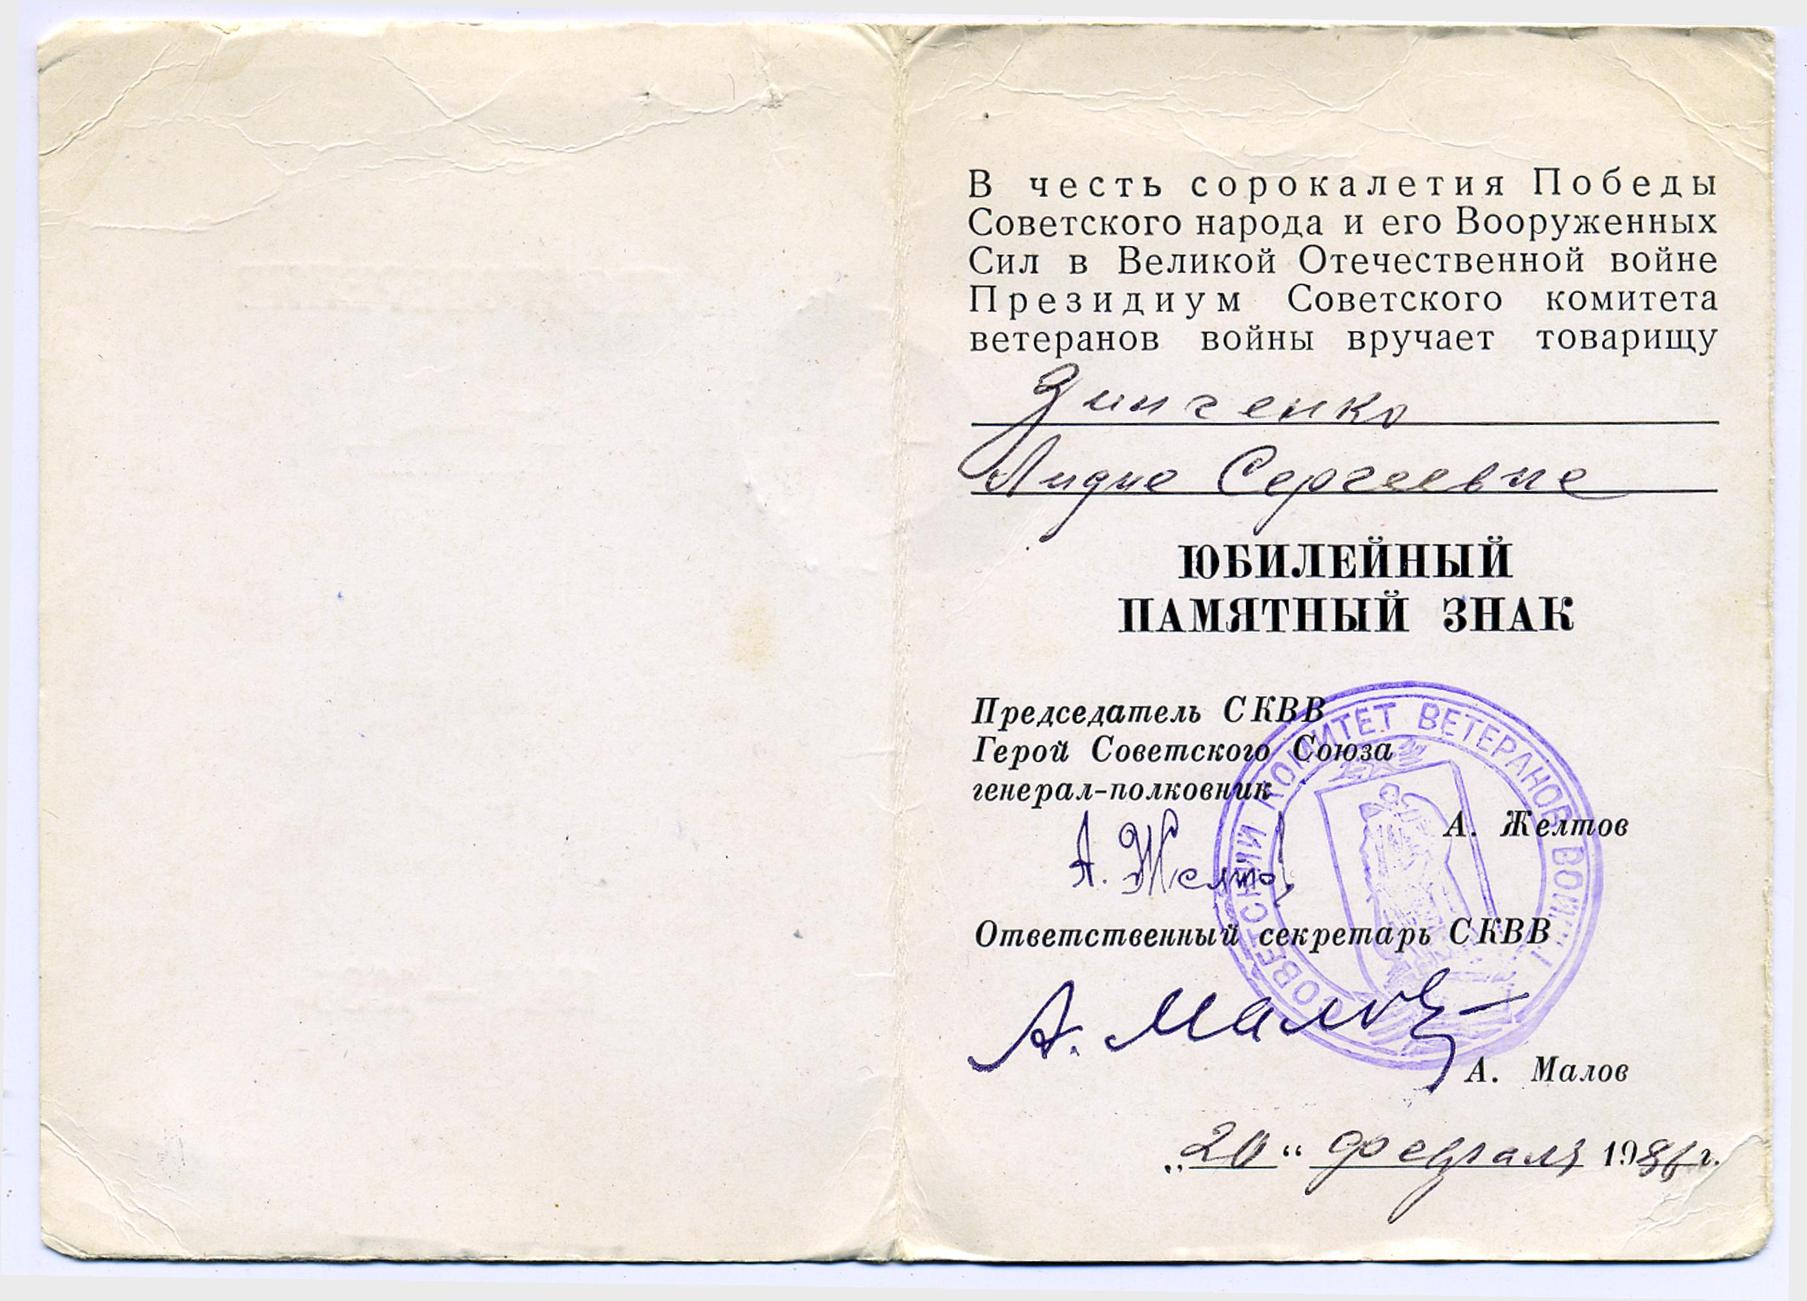 В честь сорокалетия Победы
Советского народа и его Вооруженных
Сил в Великой Отечественной войне
Президиум Советского комитета
ветеранов войны вручает товарищу
Зинченко
Лидие Сергеевне
ЮБИЛЕЙНЫЙ
ПАМЯТНЫЙ ЗНАК
Председатель СКВВ
Герой Советского Союза
генерал-полковник
А. Желтов
А. Желтов
Ответственный секретарь СКВВ
А. Малов
А. Малов
„20“ февраля 1986 г.
СОВЕТСКИЙ КОМИТЕТ ВЕТЕРАНОВ ВОЙНЫ